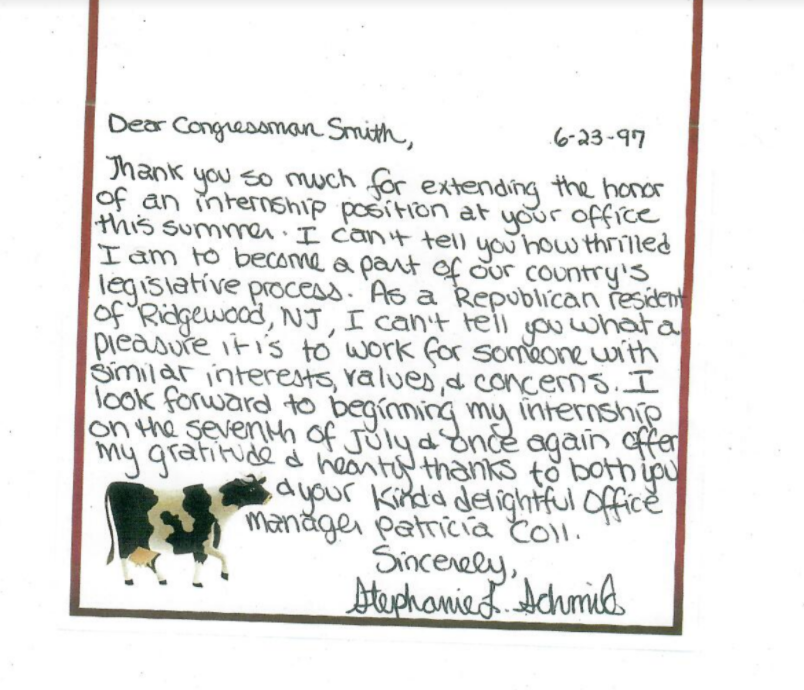 Dear Congressman Smith,
6-23-97
Thank you so much for extending the honor
of an internship position at your office
this summer. I can't tell you how thrilled
I am to become a part of our country's
legislative process. As a Republican resident
of Ridgewood, NJ, I can't tell you what a
pleasure it is to work for someone with
similar interests, values, & concerns. I
look forward to beginning my internship
on the seventh of July & once again offer
my gratitude & hearty thanks to both you
& your kind & delightful Office
manager Patricia Coll.
Sincerely,
Stephanie L. Schmid